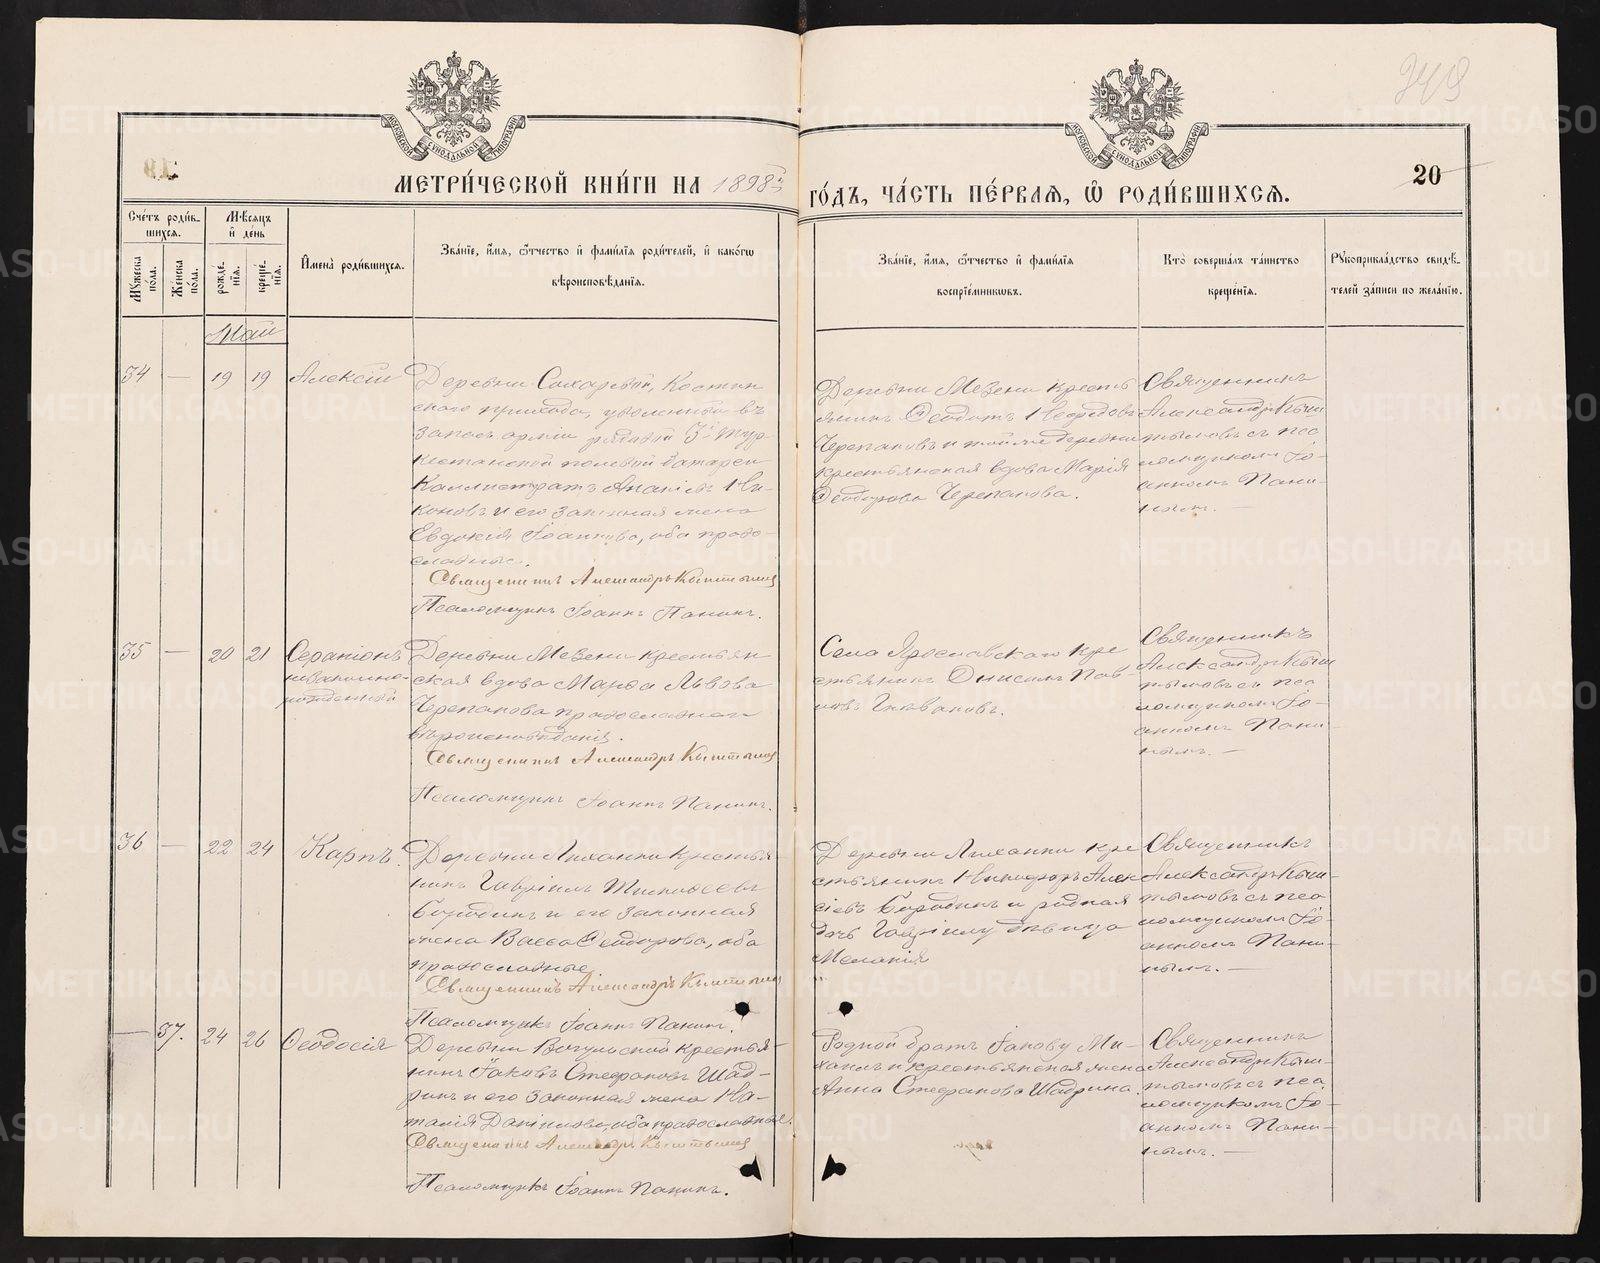 МОСКОВСКОЙ СѴНОДАЛЬНОЙ ТИПОГРАФІИ
МОСКОВСКОЙ СѴНОДАЛЬНОЙ ТИПОГРАФІИ
20
МЕТРИ́ЧЕСКОЙ КНИ́ГИ НА 1898й ГО́ДЪ, ЧА́СТЬ ПЕ́РВАЯ, Ѡ РОДИ́ВШИХСЯ.
Сче́тъ роди́в-
шихся.
Му́жеска по́ла.
Же́нска по́ла.
Мѣ́сяцъ
и де́нь
рожде́нія.
креще́нія.
Имена̀ роди́вшихся.
Зва́ніе, и́мя, ѻ́тчество и фами́лія роди́телей, и како́гѡ
вѣроисповѣ́данія.
Зва́ніе, и́мя, ѻ́тчество и фами́лія
воспріе́мникѡвъ.
Кто̀ соверша́лъ та́инство
креще́нія.
Рꙋкоприкла́дство свидѣ́-
телей за́писи по жела́нію.
Май
34 — 19 19 Алексій
Деревни Сахаревой, Костин
скаго прихода, уволенный въ
запасъ арміи рядовой 3й Тур-
кестанской полевой батареи
Каллистратъ Ананіевъ Ни-
коновъ и его законная жена
Евдокія Іоаннова, оба право-
славные.
Священникъ Александръ Кыштымовъ
Псаломщикъ Іоаннъ Панинъ.
Деревни Мезени кресть
янинъ Ѳеодотъ
Черепановъ и той же деревни
крестьянская вдова Марія
Ѳеодорова Черепанова.
Священникъ
Александръ Кыш
тымовъ съ пса
ломщикомъ Іо-
анномъ Пани-
нымъ. —
35 — 20 21 Серапіонъ
незаконно-
рожденный
Деревни Мезени крестьян
ская вдова Марѳа Львова
Черепанова православнаго
вѣроисповѣданія.
Священникъ Александръ Кыштымовъ
Псаломщикъ Іоаннъ Панинъ.
Села Ярославскаго кре
стьянинъ Онисимъ Пав-
ловъ
Священникъ
Александръ Кыш
тымовъ съ пса
ломщикомъ Іо-
анномъ Пани-
нымъ. —
36 — 22 24 Карпъ.
Деревни крестья-
нинъ Гавріилъ Тимоѳеевъ
Бородинъ и его законная
жена Васса Ѳеодорова, оба
православные
Священникъ Александръ Кыштымовъ
Псаломщикъ Іоаннъ Панинъ.
Деревни кре
стьянинъ Никифоръ Алек
сіевъ Бородинъ и родная
дочь Гавріилу дѣвица
Меланія
Священникъ
Александръ Кыш-
тымовъ съ пса
ломщикомъ Іо-
анномъ Пани-
нымъ. —
— 37. 24 26 Ѳеодосія
Деревни Вогульской крестья-
нинъ Іаковъ Стефановъ Шад-
ринъ и его законная жена На-
талія Даніилова, оба православные.
Священникъ Александръ Кыштымовъ
Псаломщикъ Іоаннъ Панинъ.
Родной братъ Іакову Ми-
хаилъ и крестьянская жена
Анна Стефанова Шадрина.
Священникъ
Александръ Кыш-
тымовъ съ пса
ломщикомъ Іо-
анномъ Пани-
нымъ. —
METRIKI.GASO-URAL.RU